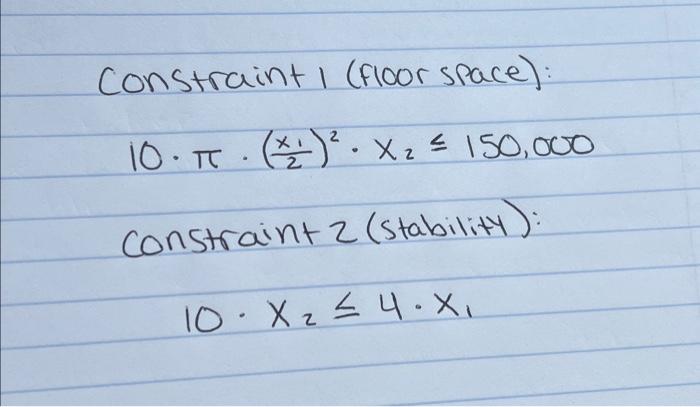 Constraint 1 (floor space):
10 · π · (x₁/2)² · x₂ ≤ 150,000
Constraint 2 (stability):
10 · x₂ ≤ 4 · x₁